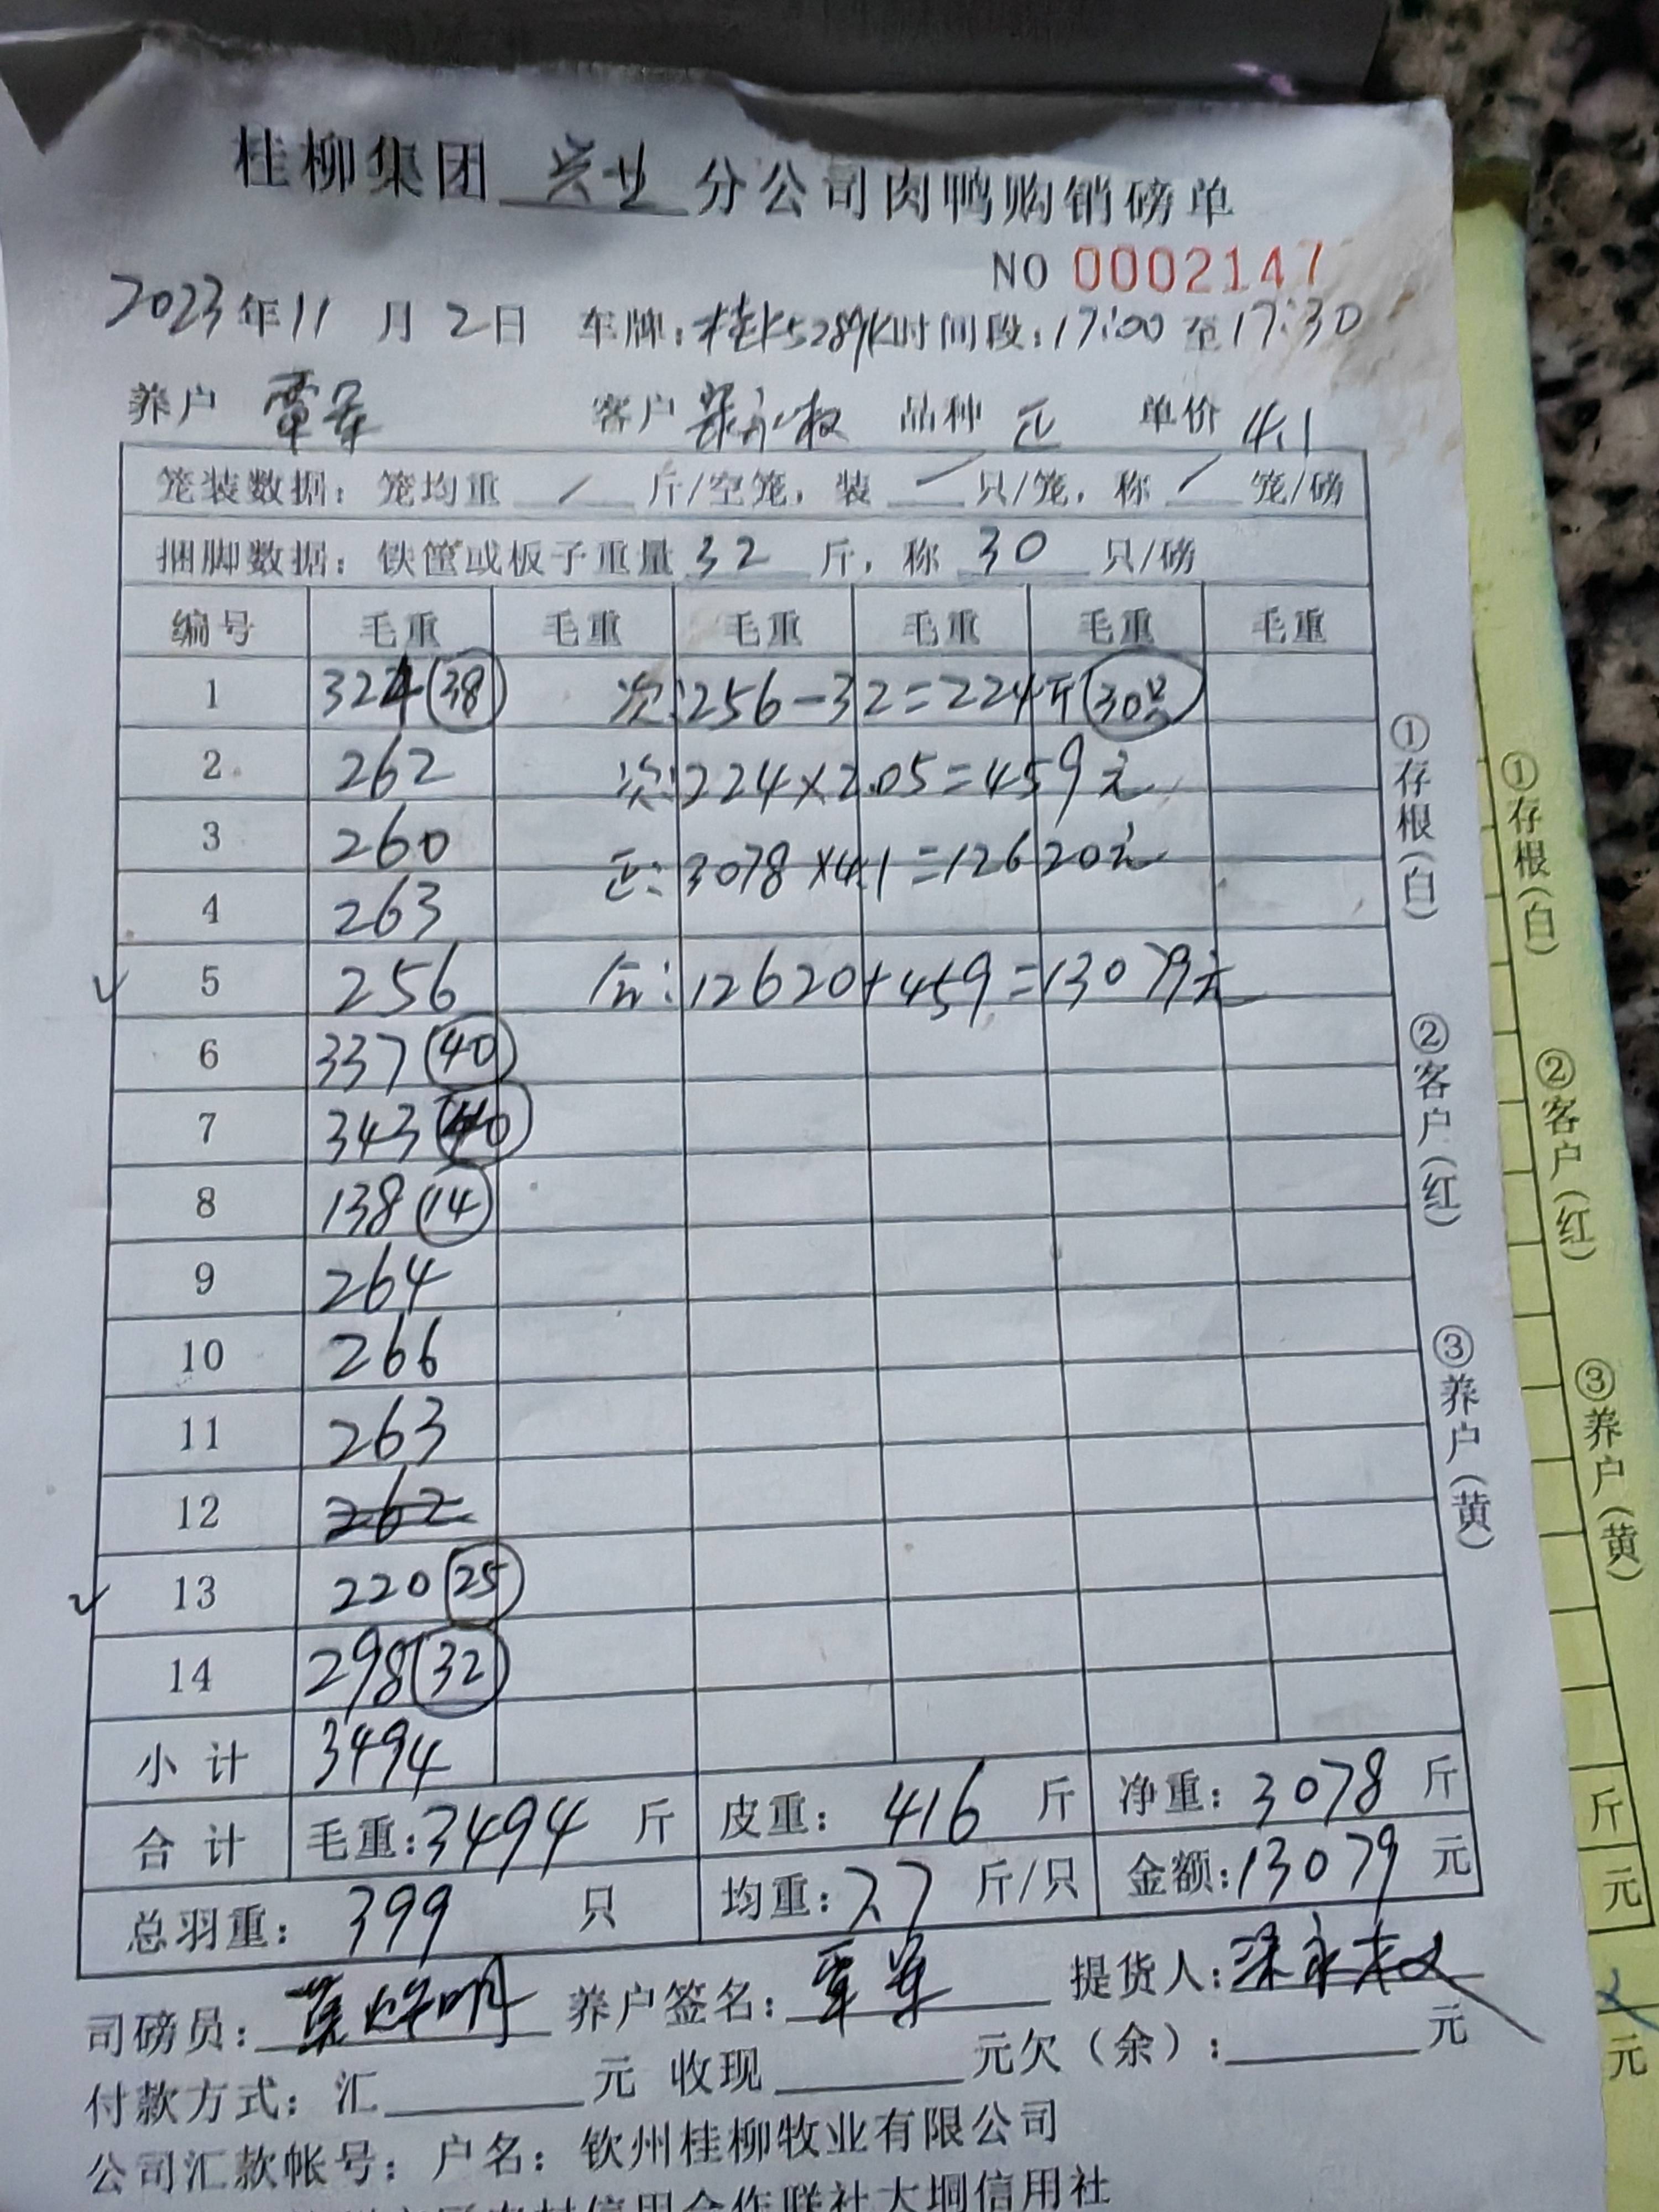 桂柳集团 兴业 分公司肉鸭购销磅单
NO 0002147
2023年11月2日 车牌:桂K5289K 时间段:17:00至17:30
养户 覃军 客户 梁永权 品种 正 单价 4.1
笼装数据: 笼均重 / 斤/空笼, 装 / 只/笼, 称 / 笼/磅
捆脚数据: 铁筐或板子重量 32 斤, 称 30 只/磅
编号 毛重 毛重 毛重 毛重 毛重 毛重
1 324 (38) 次:256-32=224斤 (30只)
2 262 次:224×2.05=459元
3 260 正:3078×4.1=12620元
4 263
✓ 5 256 合:12620+459=13079元
6 337 (40)
7 343 (40)
8 138 (14)
9 264
10 266
11 263
12 262
✓ 13 220 (25)
14 298 (32)
小计 3494
合计 毛重:3494 斤 皮重: 416 斤 净重: 3078 斤
总羽重: 399 只 均重: 7.7 斤/只 金额:13079 元
司磅员: 养户签名: 覃军 提货人: 梁永权
付款方式: 汇 元 收现 元欠(余): 元
公司汇款帐号: 户名: 钦州桂柳牧业有限公司
合作联社大垌信用社
①存根(白)
②客户(红)
③养户(黄)
①存根(白)
②客户(红)
③养户(黄)
斤
元
元